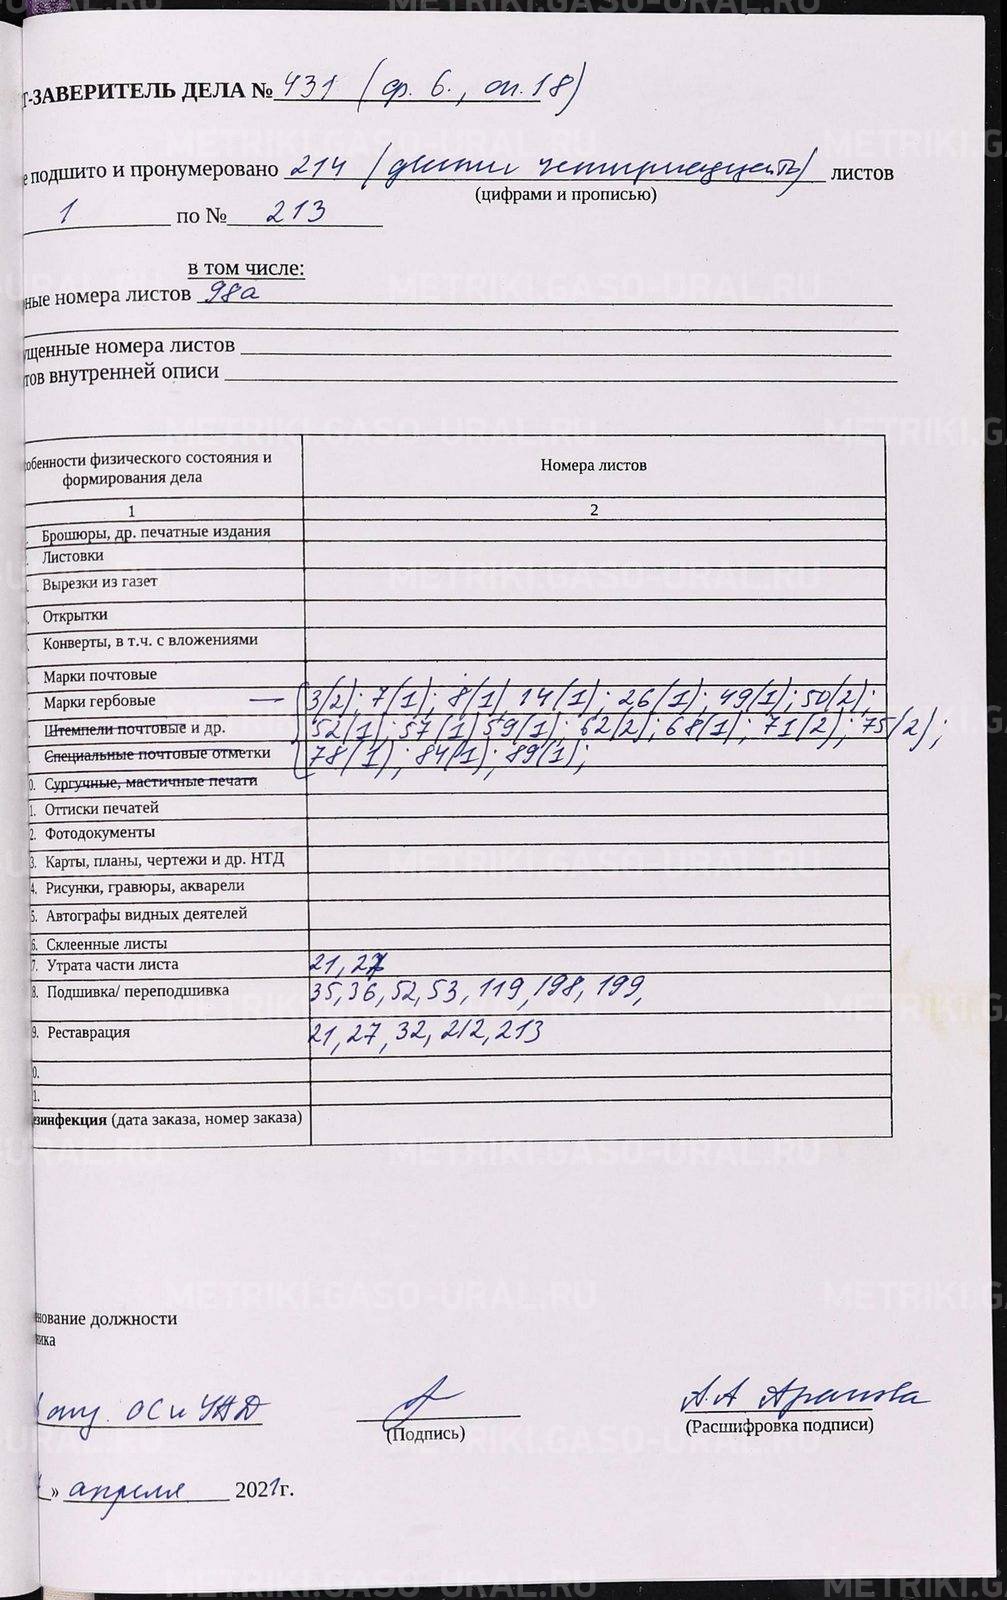 Т-ЗАВЕРИТЕЛЬ ДЕЛА № 431 (ф. 6., оп. 18)
е подшито и пронумеровано 214 (двести четырнадцать) листов
(цифрами и прописью)
1 по № 213
в том числе:
ные номера листов 98а
ущенные номера листов
тов внутренней описи
обенности физического состояния и формирования дела Номера листов
1 2
Брошюры, др. печатные издания
Листовки
Вырезки из газет
Открытки
Конверты, в т.ч. с вложениями
Марки почтовые
Марки гербовые — 3(2); 7(1); 8(1), 14(1); 26(1); 49(1); 50(2);
Штемпели почтовые и др. 52(1); 57(1) 59(1); 62(2); 68(1); 71(2); 75(2);
Специальные почтовые отметки 78(1); 84(1); 89(1);
0. Сургучные, мастичные печати
1. Оттиски печатей
2. Фотодокументы
3. Карты, планы, чертежи и др. НТД
4. Рисунки, гравюры, акварели
5. Автографы видных деятелей
6. Склеенные листы
7. Утрата части листа 21, 27
8. Подшивка/ переподшивка 35, 36, 52, 53, 119, 198, 199,
9. Реставрация 21, 27, 32, 212, 213
0.
1.
езинфекция (дата заказа, номер заказа)
нование должности
ника
ОС и УАД А.А Арапова
(Подпись) (Расшифровка подписи)
» апреля 2021г.
METRIKI.GASO-URAL.RU